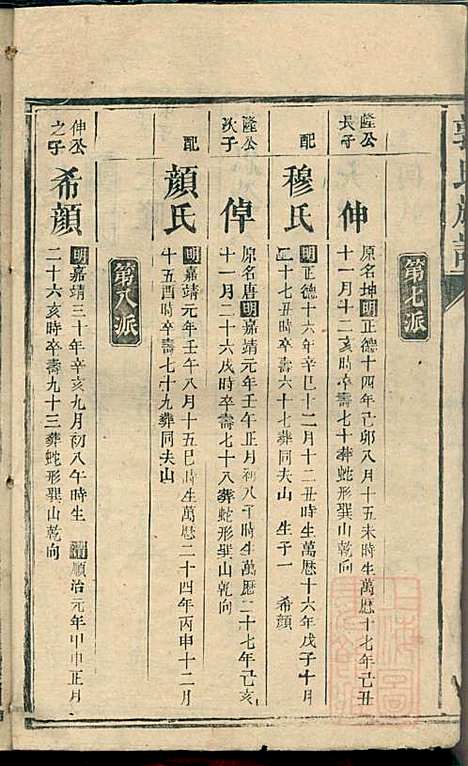 郭氏族譜
第七派
隆公
長子
伸
原名坤明正德十四年己卯八月十五未時生萬曆十七年己丑
十一月十二亥時卒壽七十葬蛇形巽山乾向
配
穆氏
明正德十六年辛巳十二月十二丑時生萬曆十六年戊子十月
二十七丑時卒壽六十七葬同夫山 生子一 希顔
隆公
次子
倬
原名唐明嘉靖元年壬午正月初八午時生萬曆二十七年己亥
十一月二十六戌時卒壽七十八葬蛇形巽山乾向
配
顔氏
明嘉靖元年壬午八月十五巳時生萬曆二十四年丙申十二月
十五酉時卒壽七十九葬同夫山
第八派
伸公
之子
希顔
明嘉靖三十年辛亥九月初八午時生 清順治元年甲申正月
二十六亥時卒壽九十三葬蛇形巽山乾向